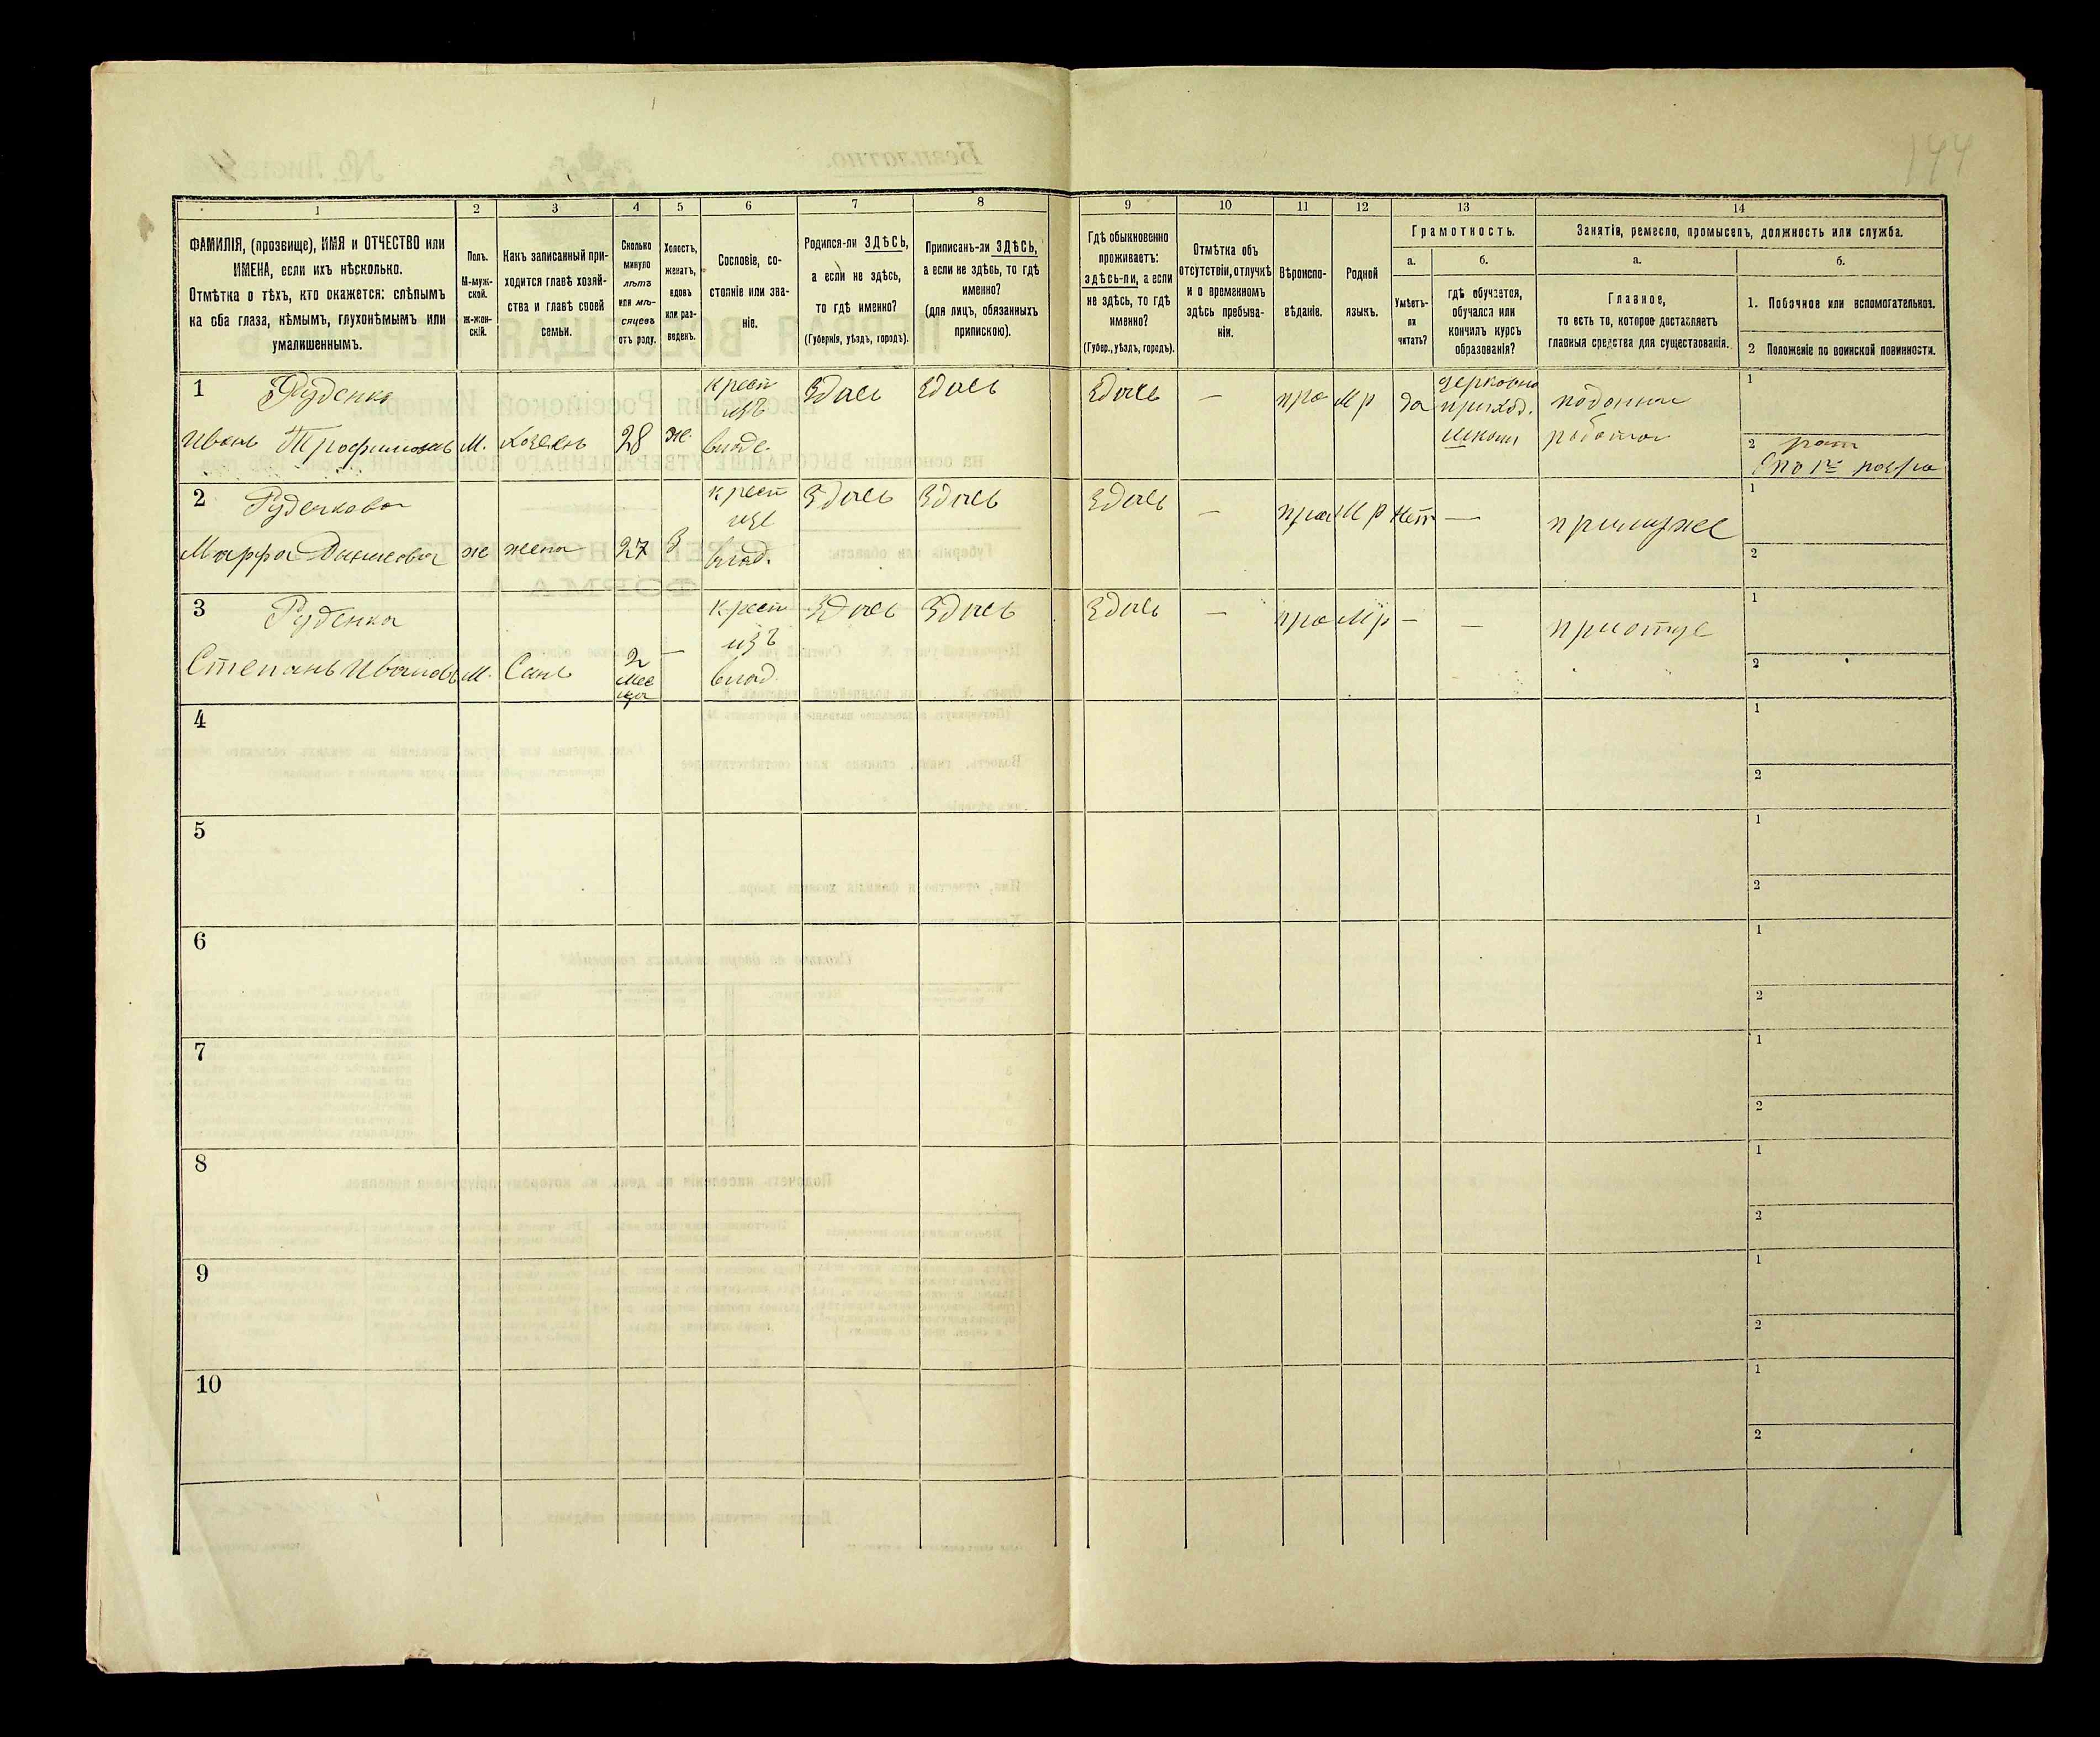 144
1
2
3
4
5
6
7
8
9
10
11
12
13
14
ФАМИЛІЯ, (прозвище), ИМЯ и ОТЧЕСТВО или
ИМЕНА, если ихъ нѣсколько.
Отмѣтка о тѣхъ, кто окажется: слѣпымъ
на оба глаза, нѣмымъ, глухонѣмымъ или
умалишеннымъ.
Полъ.
М-муж-
ской.
Ж-жен-
скій.
Какъ записанный при-
ходится главѣ хозяй-
ства и главѣ своей
семьи.
Сколько
минуло
лѣтъ
или мѣ-
сяцевъ
отъ роду.
Холостъ,
женатъ,
вдовъ
или раз-
веденъ.
Сословіе, со-
стояніе или зва-
ніе.
Родился-ли ЗДѢСЬ,
а если не здѣсь,
то гдѣ именно?
(Губернія, уѣздъ, городъ).
Приписанъ-ли ЗДѢСЬ,
а если не здѣсь, то гдѣ
именно?
(для лицъ, обязанныхъ
припискою).
Гдѣ обыкновенно
проживаетъ:
здѣсь-ли, а если
не здѣсь, то гдѣ
именно?
(Губер., уѣздъ, городъ).
Отмѣтка объ
отсутствіи, отлучкѣ
и о временномъ
здѣсь пребыва-
ніи.
Вѣроиспо-
вѣданіе.
Родной
языкъ.
Грамотность.
а.
Умѣетъ-
ли
читать?
б.
гдѣ обучается,
обучался или
кончилъ курсъ
образованія?
Занятіе, ремесло, промыселъ, должность или служба.
а.
Главное,
то есть то, которое доставляетъ
главныя средства для существованія.
б.
1. Побочное или вспомогательное.
2 Положеніе по воинской повинности.
1 Руденко
Иванъ Трофимовъ М. хозяинъ 28 же.
крест
изъ
владе.
Здась Здась Здась — пра Мр да
церковно
приход.
школы
поденная
работа
1
2 рат
опо 1го разра
2 Руденкова
Марфа Данилова ж жена 27 З
крест
изъ
влад.
Здась Здась Здась — пра Мр Нет — примуже
1
2
3 Руденка
Степанъ Ивановъ М. Сынъ
2
мес
яца
—
крест
изъ
влад.
Здась Здась Здась — пра Мр — — приотце
1
2
4
1
2
5
1
2
6
1
2
7
1
2
8
1
2
9
1
2
10
1
2